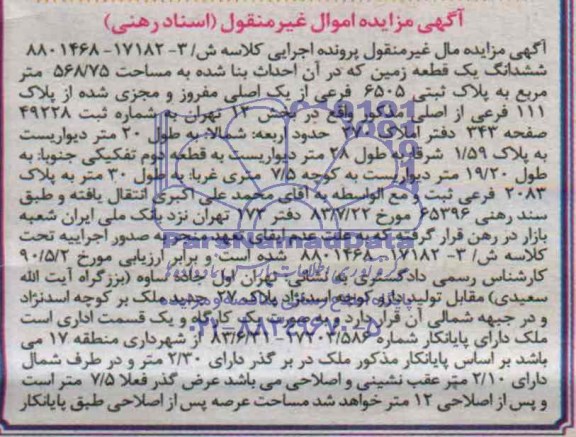 آگهی مزایده اموال غیرمنقول (اسناد رهنی)
آگهی مزایده مال غیرمنقول پرونده اجرایی کلاسه ش/ ۳- ۱۷۱۸۲- ۸۸۰۱۴۶۸
ششدانگ یک قطعه زمین که در آن احداث بنا شده به مساحت ۵۶۸/۷۵ متر
مربع به پلاک ثبتی ۶۵۰۵ فرعی از یک اصلی مفروز و مجزی شده از پلاک
۱۱۱ فرعی از اصلی مذکور واقع در بخش ۱۲ تهران به شماره ثبت ۴۹۲۲۸
صفحه ۳۴۳ دفتر املاک ۲۷۰ حدود اربعه: شمالا: به طول ۲۰ متر دیواریست
به پلاک ۱/۵۹ شرقا: به طول ۲۸ متر دیواریست به قطعه دوم تفکیکی جنوبا: به
طول ۱۹/۲۰ متر دیواریست به کوچه ۷/۵ متری غربا: به طول ۳۰ متر به پلاک
۲۰۸۳ فرعی ثبت و مع الواسطه به آقای محمد علی اکبری انتقال یافته و طبق
سند رهنی ۶۵۳۹۶ مورخ ۸۳/۷/۲۲ دفتر ۱۷۳ تهران نزد بانک ملی ایران شعبه
بازار در رهن قرار گرفته که به علت عدم ایفای تعهد منجر به صدور اجراییه تحت
کلاسه ش/ ۳- ۱۷۱۸۲- ۸۸۰۱۴۶۸ شده است و برابر ارزیابی مورخ ۹۰/۵/۲
کارشناس رسمی دادگستری به نشانی تهران اول جاده ساوه (بزرگراه آیت الله
سعیدی) مقابل تولید دارو کوچه اسدنژاد پلاک ۷ جدید ملک بر کوچه اسدنژاد
و در جبهه شمالی آن قرار دارد و به صورت یک کارگاه و یک قسمت اداری است
ملک دارای پایانکار شماره ۲۷۷۰۳/۵۸۶- ۸۳/۶/۳۱ از شهرداری منطقه ۱۷ می
باشد بر اساس پایانکار مذکور ملک در بر گذر دارای ۲/۳۰ متر و در طرف شمال
دارای ۲/۱۰ متر عقب نشینی و اصلاحی می باشد عرض گذر فعلا ۷/۵ متر است
و پس از اصلاحی ۱۲ متر خواهد شد مساحت عرصه پس از اصلاحی طبق پایانکار
ParsNamadData
۰۲۱-۸۸۳۴۹۶۷۰-۵